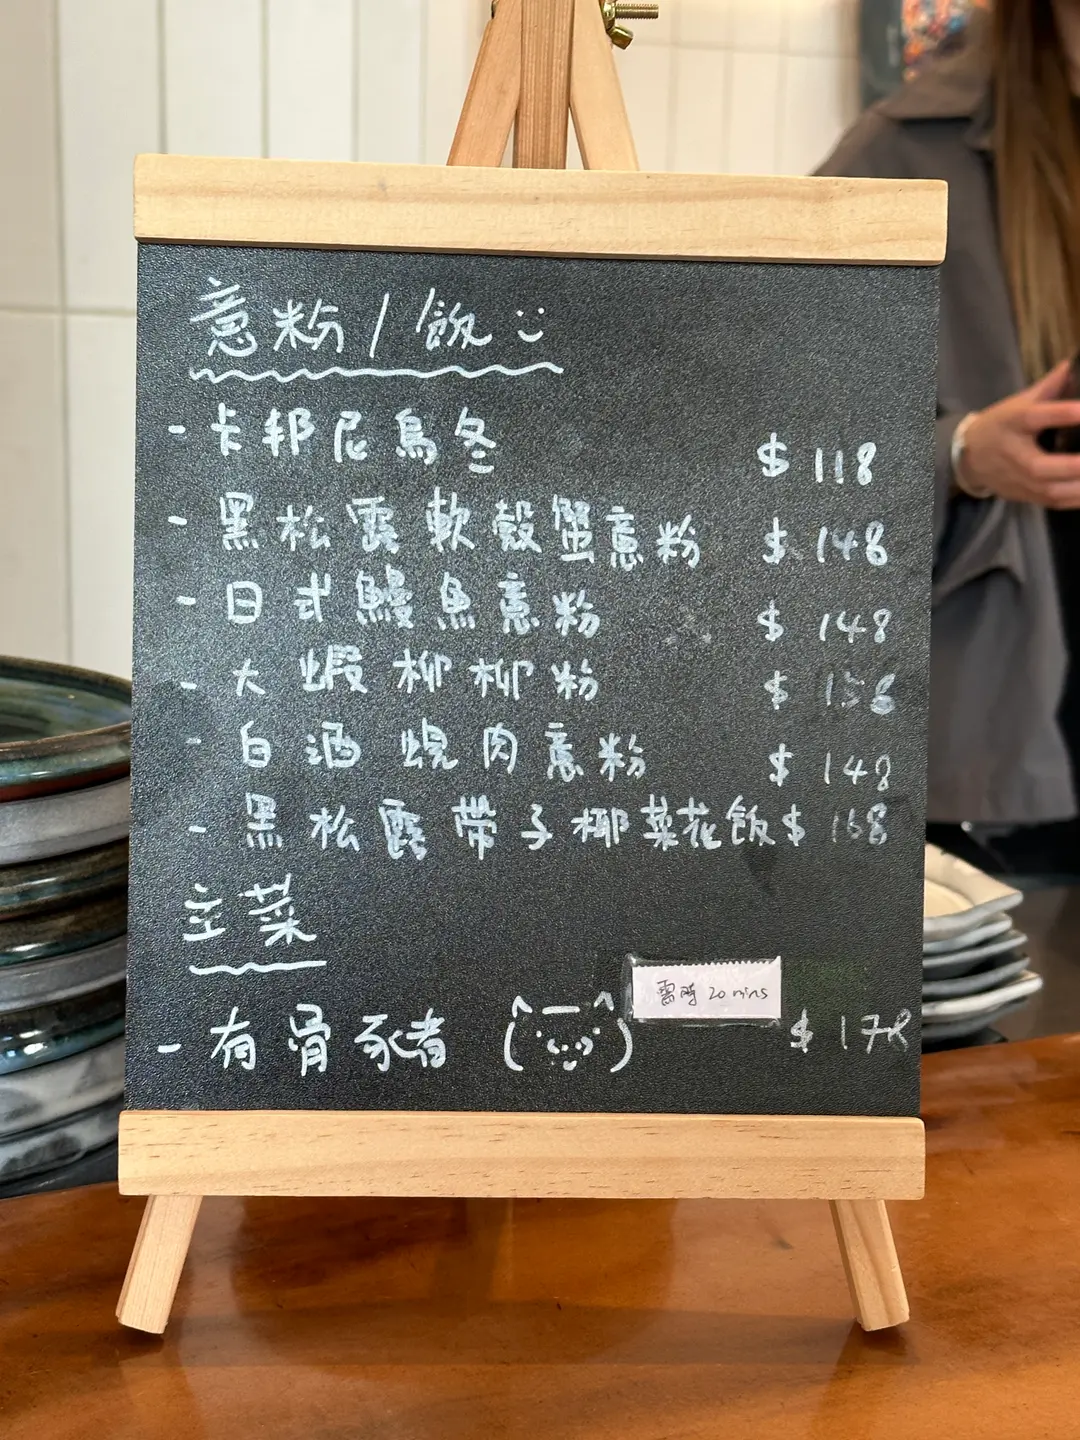 意粉 / 飯
- 卡邦尼烏冬 $ 118
- 黑松露軟殼蟹意粉 $ 148
- 日式鰻魚意粉 $ 148
- 大蝦柳柳粉 $ 158
- 白酒燒肉意粉 $ 148
- 黑松露帶子椰菜花飯 $ 168
主菜
需時 20 mins
- 有骨豕者 $ 178